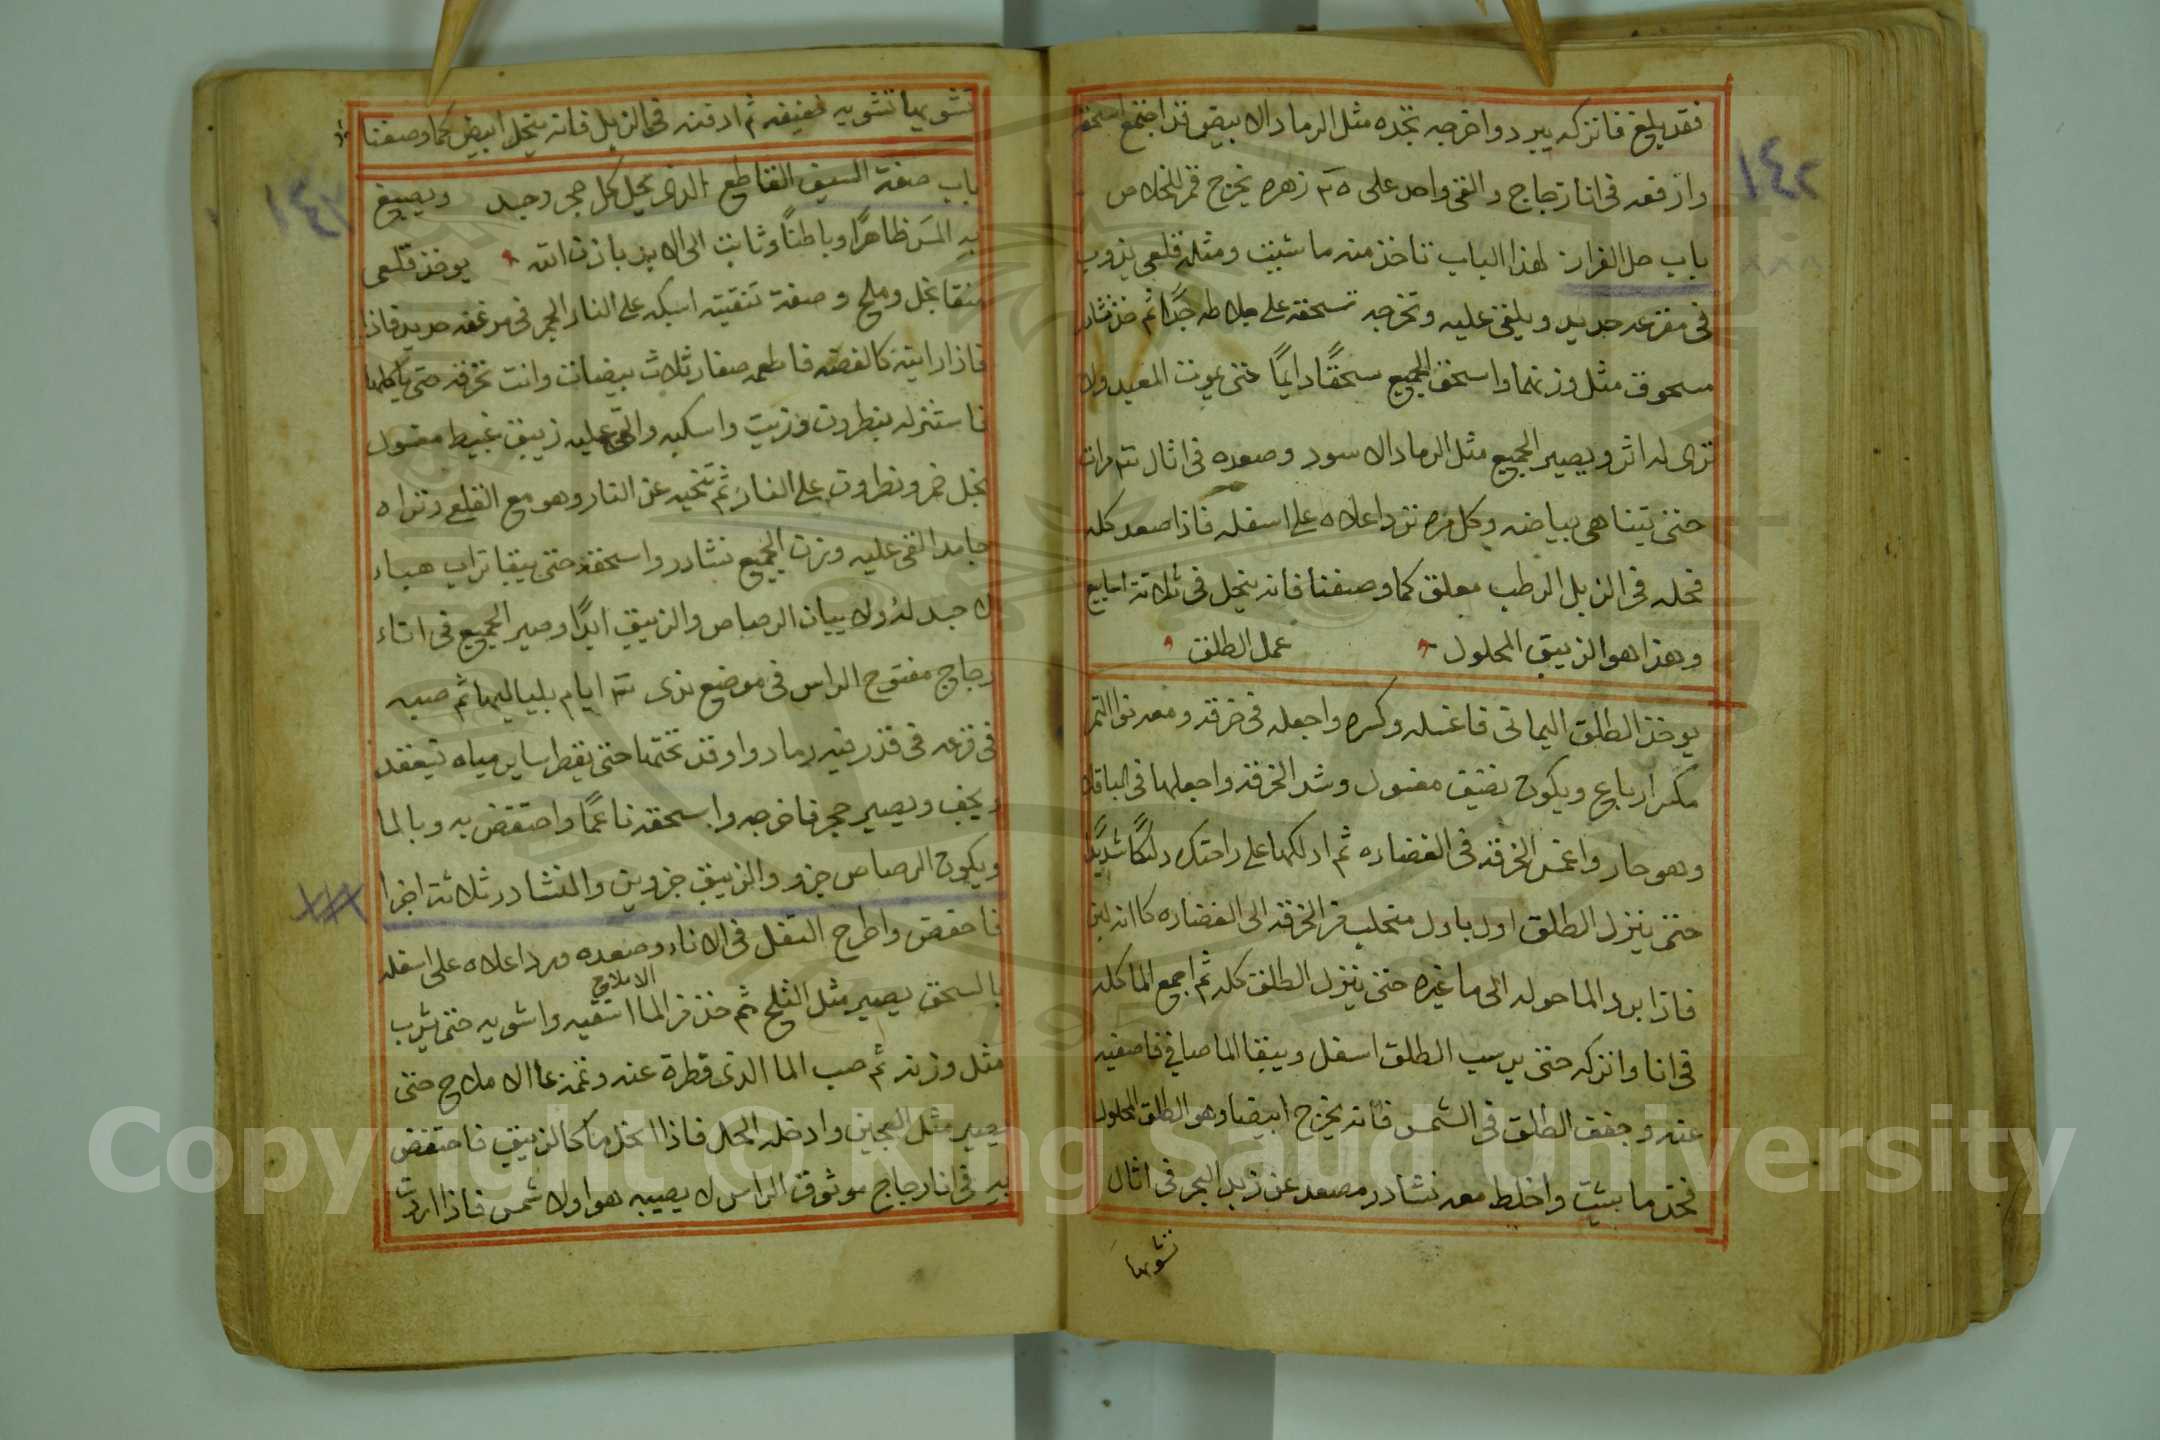 فقد بلغ فاتركه يبرد واخرجه تجده مثل الرماد الابيض قد اجتمع اسحقه
وارفعه في انا زجاج والقي واحد على زهره يخرج قمر الخلاص
باب حل الفرار لهذا الباب تاخذ منه ما شيت ومثله قلعي يذوب
في مغرفه حديد ويلقي عليه وتخرجه تسحقه على صلاطه جدًا ثم خذ نشادر
مسحوق مثل وزنهما واسحق الجميع سحقًا دايمًا حتى يموت العبد ولا
ترى له اثر ويصير الجميع مثل الرماد الاسود وصعده في اثال مرات
حتى يتناهى بياضه وكل مره ترد اعلاه على اسفله فاذا صعد كله
فحله في الزبل الرطب معلق كما وصفنا فانه ينحل في ثلاثة اسابيع
وهذا هو الزيبق المحلول عمل الطلق
يوخذ الطلق اليماني فاغسله وكسره واجعله في خرقه ومعه نوا التمر
مكسر ارباع ويكون نضيف مغسول وشد الخرقه واجعلها في الباقلا
وهو حار واغمس الخرقه في الغضاره ثم ادلكها على راحتك دلكًا شديدًا
حتى ينزل الطلق اول باول متحلب من الخرقه الى الغضاره كانه لبن
فاذا برد الما حوله الى ما غيره حتى ينزل الطلق كله ثم اجمع الما كله
في انا واتركه حتى يرسب الطلق اسفل ويبقا الما صافي فاصفيه
عنه وجفف الطلق في الشمس فانه يخرج ابيضا وهو الطلق المحلول
فخذ ما شيت واخلط معه نشادر مصعد عن زبد البحر في اثال
تشويها
تشويها تشويه خفيفه ثم ادفنه في الزبل فانه ينحل ابيض كما وصفنا
باب صفة السيف القاطع الذي يحل كل حجر وجسد ويصبغ
به المس ظاهرًا وباطنًا وثابت الى الابد باذن الله يوخذ قلعي
منقا بخل وملح وصفة تنقيته اسبكه على النار الجمر في مغرفه حديد فاذا
فاذا رايته كالفضه فاطعمه صفار ثلاث بيضات وانت تحرقه حتى ياكلها
فاستنزله بنطرون وزيت واسكبه والقي عليه زيبق عبيط مغسول
بخل خمر ونطرون على النار ثم تنحيه عن النار وهو مع القلعي وتراه
جامد القي عليه وزن الجميع نشادر واسحقه حتى يبقا تراب هباء
لا جسد له ولا يبان الرصاص والزيبق ابدًا وصير الجميع في اناء
زجاج مفتوح الراس في موضع ندى ايام بلياليها ثم صبه
في قرعه في قدر فيه رماد واوقد تحتها حتى يقطر ساير مياه تيعقد
ويجف ويصير حجر فاخرجه واسحقه ناعمًا واحتفض به وبالما
ويكون الرصاص جزو والزيبق جزوين والنشادر ثلاثة اجزا
فاحفض واطرح الثفل في الاناء وصعده ورد اعلاه على اسفله
بالسحق يصير مثل الثلج ثم خذ من الما اسقيه الاملاح واشويه حتى يشرب
مثل وزنه ثم صب الما الذي قطرة عنه وتمزعا الاملاح حتى
يصير مثل العجين وادخله الحل فاذا انحل ما كالزيبق فاحتفض
به في انا زجاج موثوق الراس لا يصيبه هوا ولا شمس فاذا اردت
Copyright © King Saud University